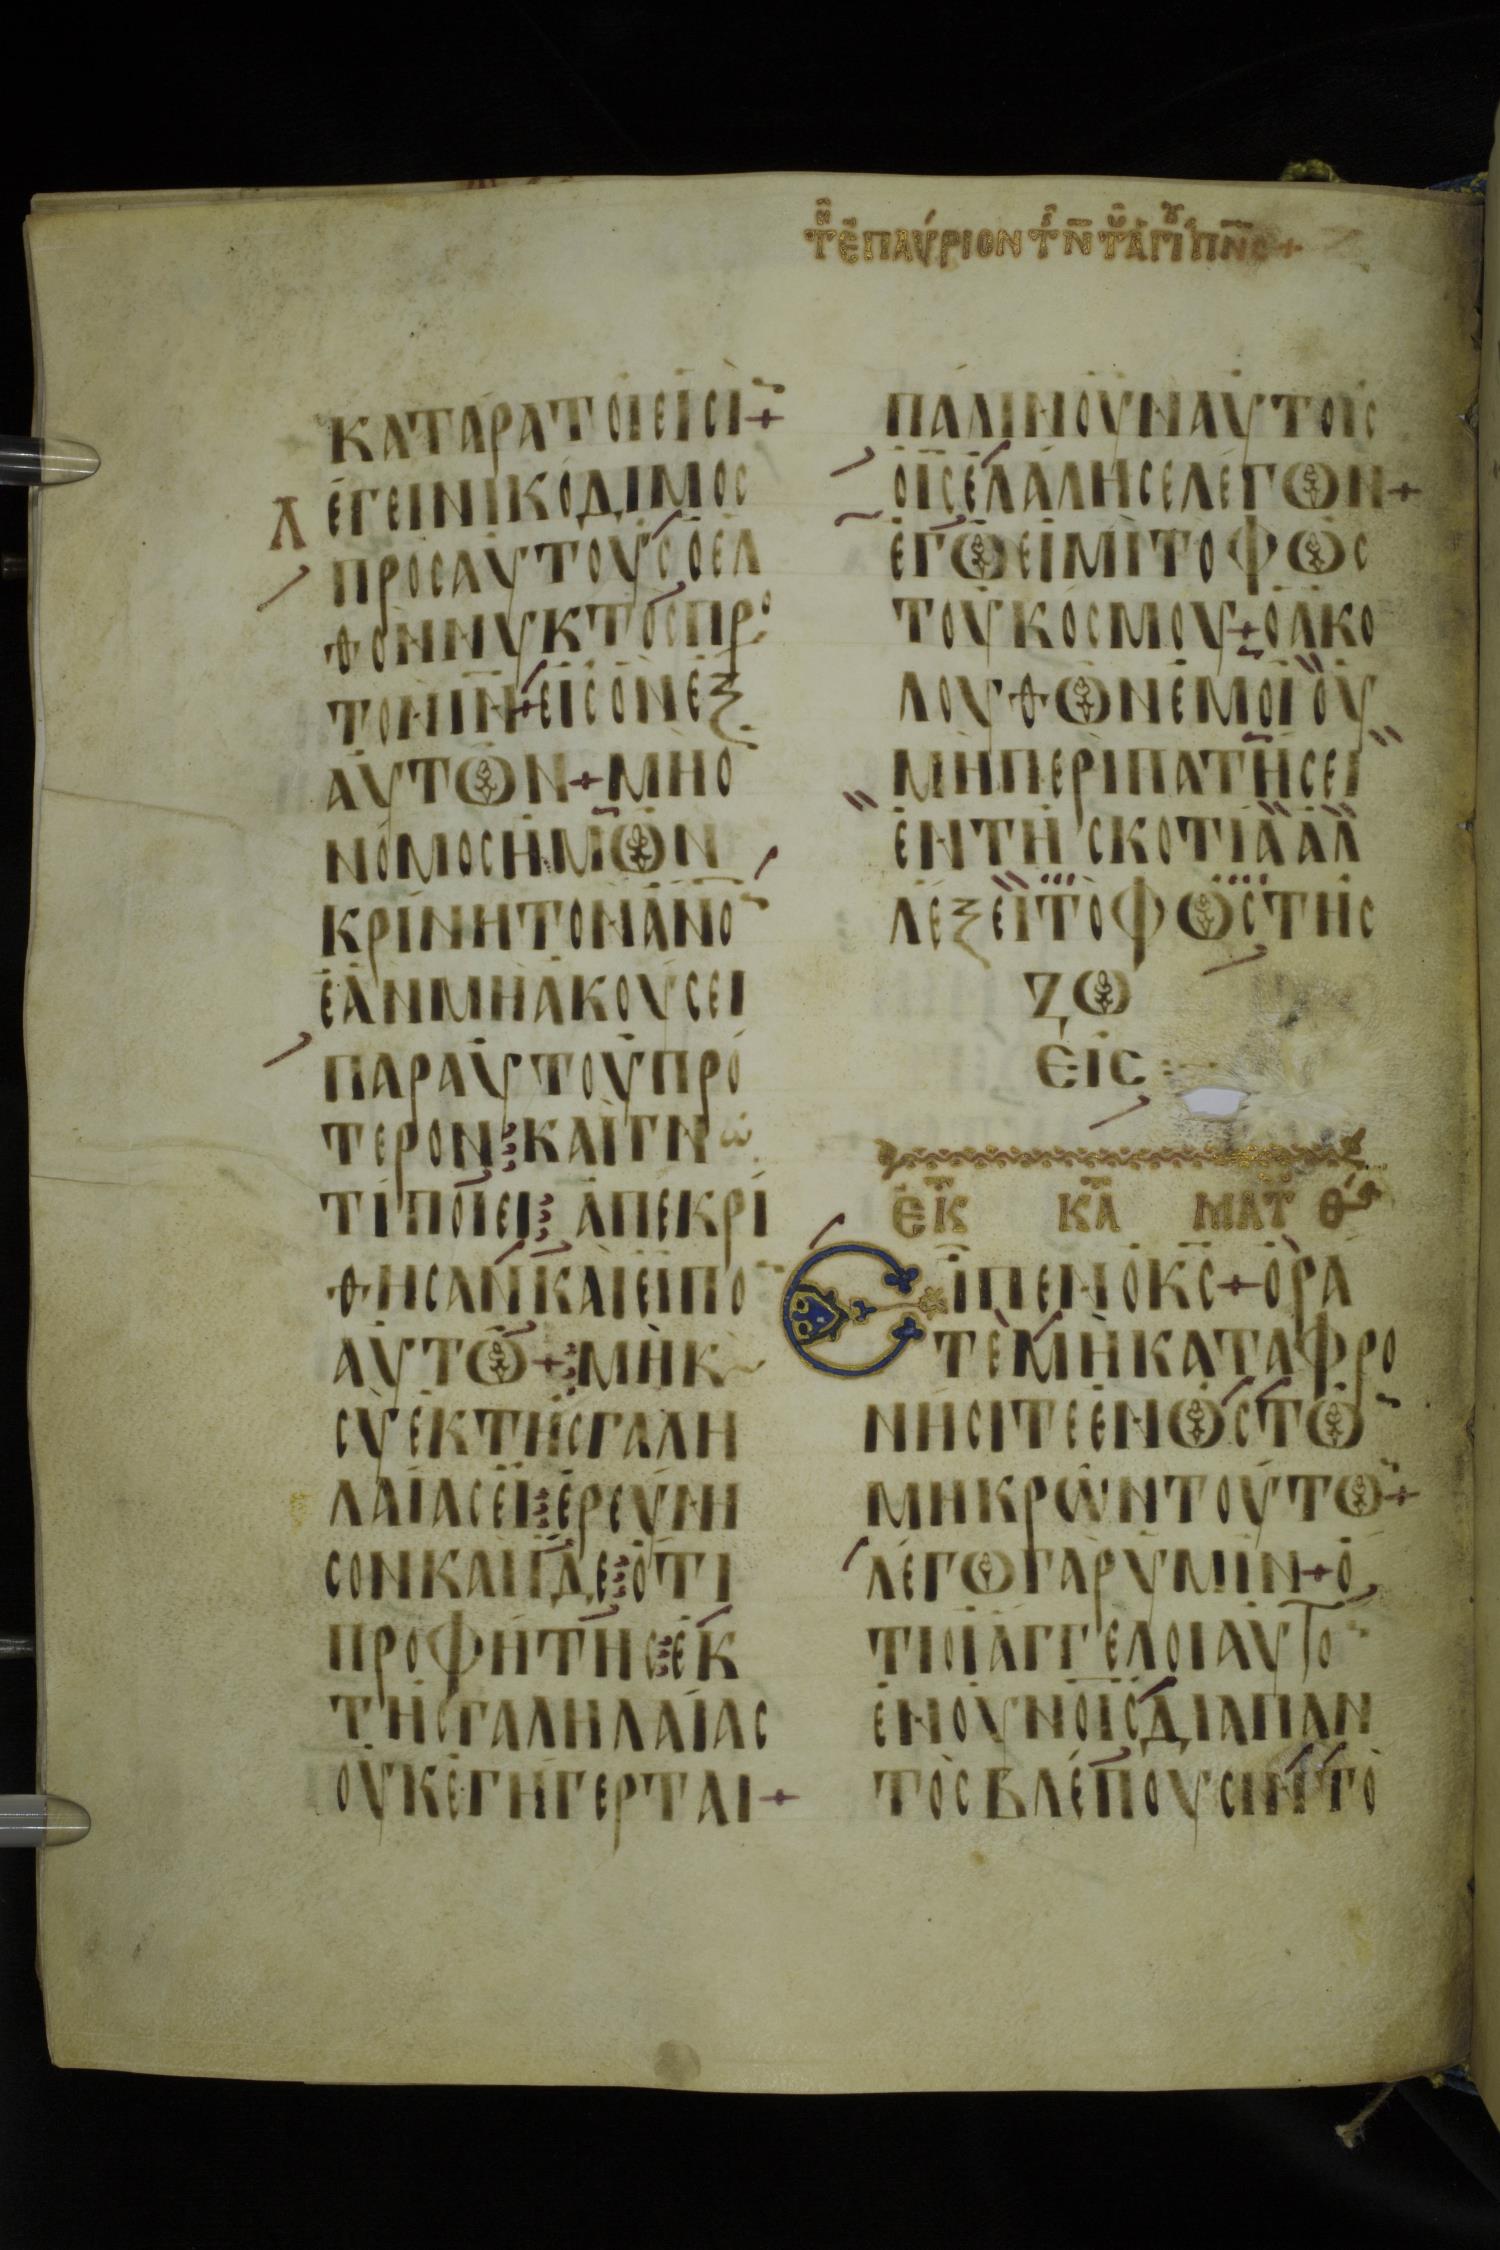 ΤΗ ΕΠΑΥΡΙΟΝ ΤΗΣ Ν̅ ΤΟΥ ΑΓΙΟΥ Π̅Ν̅Σ +
ΚΑΤΑΡΑΤΟΙΕΙΣΙ +
Λ
ΕΓΕΙΝΙΚΟΔΙΜΟΣ
ΠΡΟΣΑΥΤΟΥΣΟΕΛ
ΘΟΝΝΥΚΤΟΣΠΡΟ
ΤΟΝΙ̅Ν̅ + ΕΙΣΟΝΕΞ
ΑΥΤΩΝ + ΜΗΟ
ΝΟΜΟΣΗΜΩΝ
ΚΡΙΝΗΤΟΝΑ̅Ν̅Ο̅
ΕΑΝΜΗΑΚΟΥΣΕΙ
ΠΑΡΑΥΤΟΥΠΡΟ
ΤΕΡΟΝ ΚΑΙΓΝΩ
ΤΙΠΟΙΕΙ ΑΠΕΚΡΙ
ΘΗΣΑΝΚΑΙΕΙΠΟ̅
ΑΥΤΩ + ΜΗΚ
ΣΥΕΚΤΗΣΓΑΛΗ
ΛΑΙΑΣΕΙ ΕΡΕΥΝΗ
ΣΟΝΚΑΙΙΔΕ ΟΤΙ
ΠΡΟΦΗΤΗΣ ΕΚ
ΤΗΣΓΑΛΗΛΑΙΑΣ
ΟΥΚΕΓΗΓΕΡΤΑΙ +
ΠΑΛΙΝΟΥΝΑΥΤΟΙΣ
ΟΙΣΕΛΑΛΗΣΕΛΕΓΩΝ +
ΕΓΩΕΙΜΙΤΟΦΩΣ
ΤΟΥΚΟΣΜΟΥ + ΟΑΚΟ
ΛΟΥΘΩΝΕΜΟΙΟΥ
ΜΗΠΕΡΙΠΑΤΗΣΕΙ
ΕΝΤΗΣΚΟΤΙΑΑΛ
ΛΕΞΕΙΤΟΦΩΣΤΗΣ
ΖΩ
ΕΙΣ
ΕΚ ΚΑ ΜΑΤΘ
ΕΙΠΕΝΟΚ̅Σ̅ + ΟΡΑ
ΤΕΜΗΚΑΤΑΦΡΟ
ΝΗΣΙΤΕΕΝΩΣΤΩ̅
ΜΗΚΡΩΝΤΟΥΤΩ̅ +
ΛΕΓΩΓΑΡΥΜΙΝ + Ο
ΤΙΟΙΑΓΓΕΛΟΙΑΥΤΟ̅
ΕΝΟΥΝΟΙΣΔΙΑΠΑΝ
ΤΟΣΒΛΕΠΟΥΣΙΝΤΟ